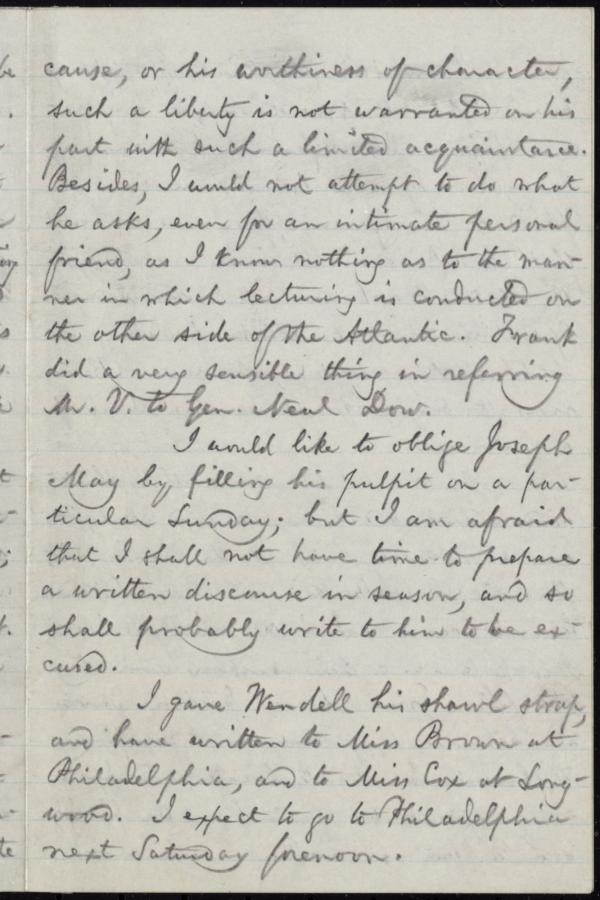 cause, or his worthiness of character,
such a liberty is not warranted on his
part with such a limited acquaintance.
Besides, I would not attempt to do what
he asks, even for an intimate personal
friend, as I know nothing as to the man-
ner in which lecturing is conducted on
the other side of the Atlantic. Frank
did a very sensible thing in referring
Mr. V. to Gen. Neal Dow.
I would like to oblige Joseph
May by filling his pulpit on a par-
ticular Sunday; but I am afraid
that I shall not have time to prepare
a written discourse in season, and so
shall probably write to him to be ex-
cused.
I gave Wendell his shawl strap,
and have written to Miss Brown at
Philadelphia, and to Miss Cox at Long-
wood. I expect to go to Philadelphia
next Saturday forenoon.